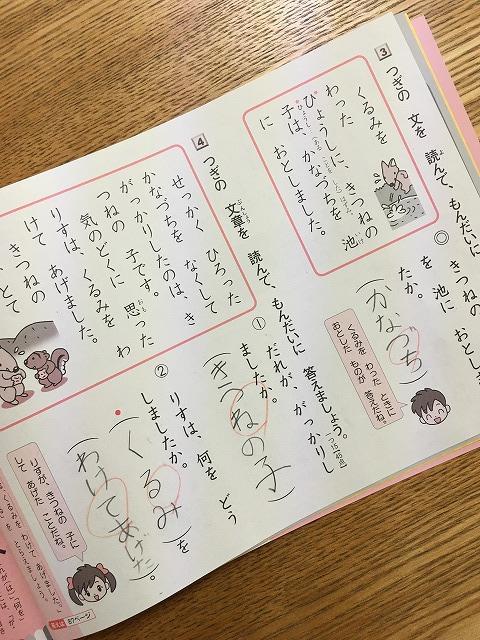 3
つぎの 文を 読んで、もんだいに
くるみを
わった
ひょうしに、きつねの
子は、かなづちを 池
に おとしました。
◎ きつねの
を 池に
たか。
(かなづち)
くるみを わった ときに
おとした ものが 答えだね。
4
つぎの 文章を 読んで、もんだいに 答えましょう。
せっかく ひろった
かなづちを なくして
がっかりしたのは、き
つねの 子です。
気のどくに 思った
りすは、くるみを わ
けて あげました。
きつねの
① だれが、がっかりし
ましたか。
(きつねの子)
② りすは、何を どう
しましたか。
(くるみ)を
(わけてあげた)。
りすが、きつねの 子に
して あげた ことだね。
87ページ